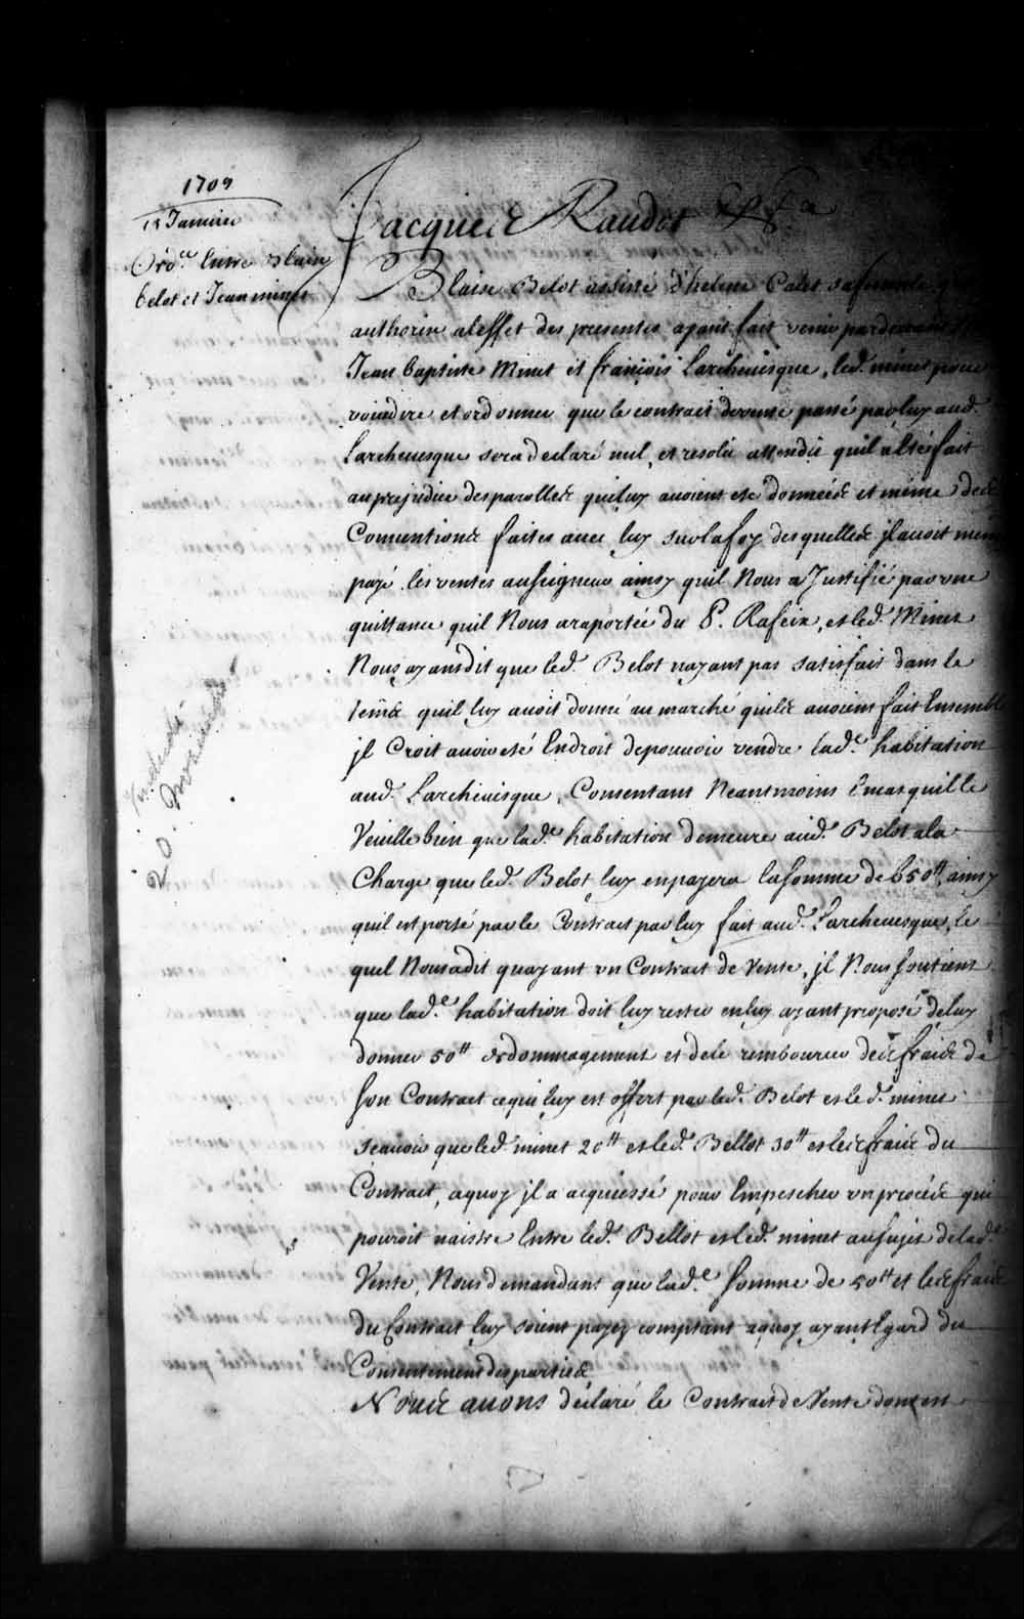 1709
13 Januier
Ord.ce Entre Blaise
belot et Jean minet
Jacques Raudot &c.a
Blaise Belot assisté d'helene Calet sa femme q
authorise a leffet des presentes ayant fait venir pardeuant
Jean baptiste Minet et françois Larcheuesque, led. minet pour
voir dire et ordonner que le contrait de vente passé par luy aud.
Larcheuesque sera declaré nul, et resolu attendu quil a esté fait
au prejudice des parolles qui luy auoient esté données et même des
Conuentions faites auec luy sur la foy desquelles jl auoit mem
payé les ventes au seigneur ainsy quil Nous a Justifié par vne
quittance quil Nous a raportée du P. Rafeix, et led. Minet
Nous ayans dit que led. Belot n'ayant pas satisfait dans le
tems quil luy auoit donné au marché quils auoient fait Ensemble
jl Croit auoir esté En droit de pouuoir vendre lad.e habitation
aud. Larcheuesque, Consentant Neantmoins En cas quil le
Veuille bien que lad.e habitation demeure aud. Belot a la
Charge que led. Belot luy en payera la somme de 650tt, ainsy
quil est porté par le Contract par luy fait aud. Larcheuesque, le
quel Nous a dit qu'ayant vn Contract de Vente, jl Nous soutient
que lad.e habitation doit luy rester en luy ayant proposé de luy
donner 50tt de dommagement et de le rembourcer des fraix de
son Contract ce qui luy est offert par led. Belot et led. minet
scauoir que led. minet 20tt et led. Bellot 30tt et les fraix du
Contract, a quoy jl a acquiessé pour Empescher vn procés qui
pouroit naistre Entre led. Bellot et led. minet au sujet de lad.e
Vente, Nous demandant que lad.e somme de 50tt et les fraix
du Contract luy soient payez comptant a quoy ayant Egard du
Consentement des parties
Nous auons déclaré le Contract de Vente dont en
20